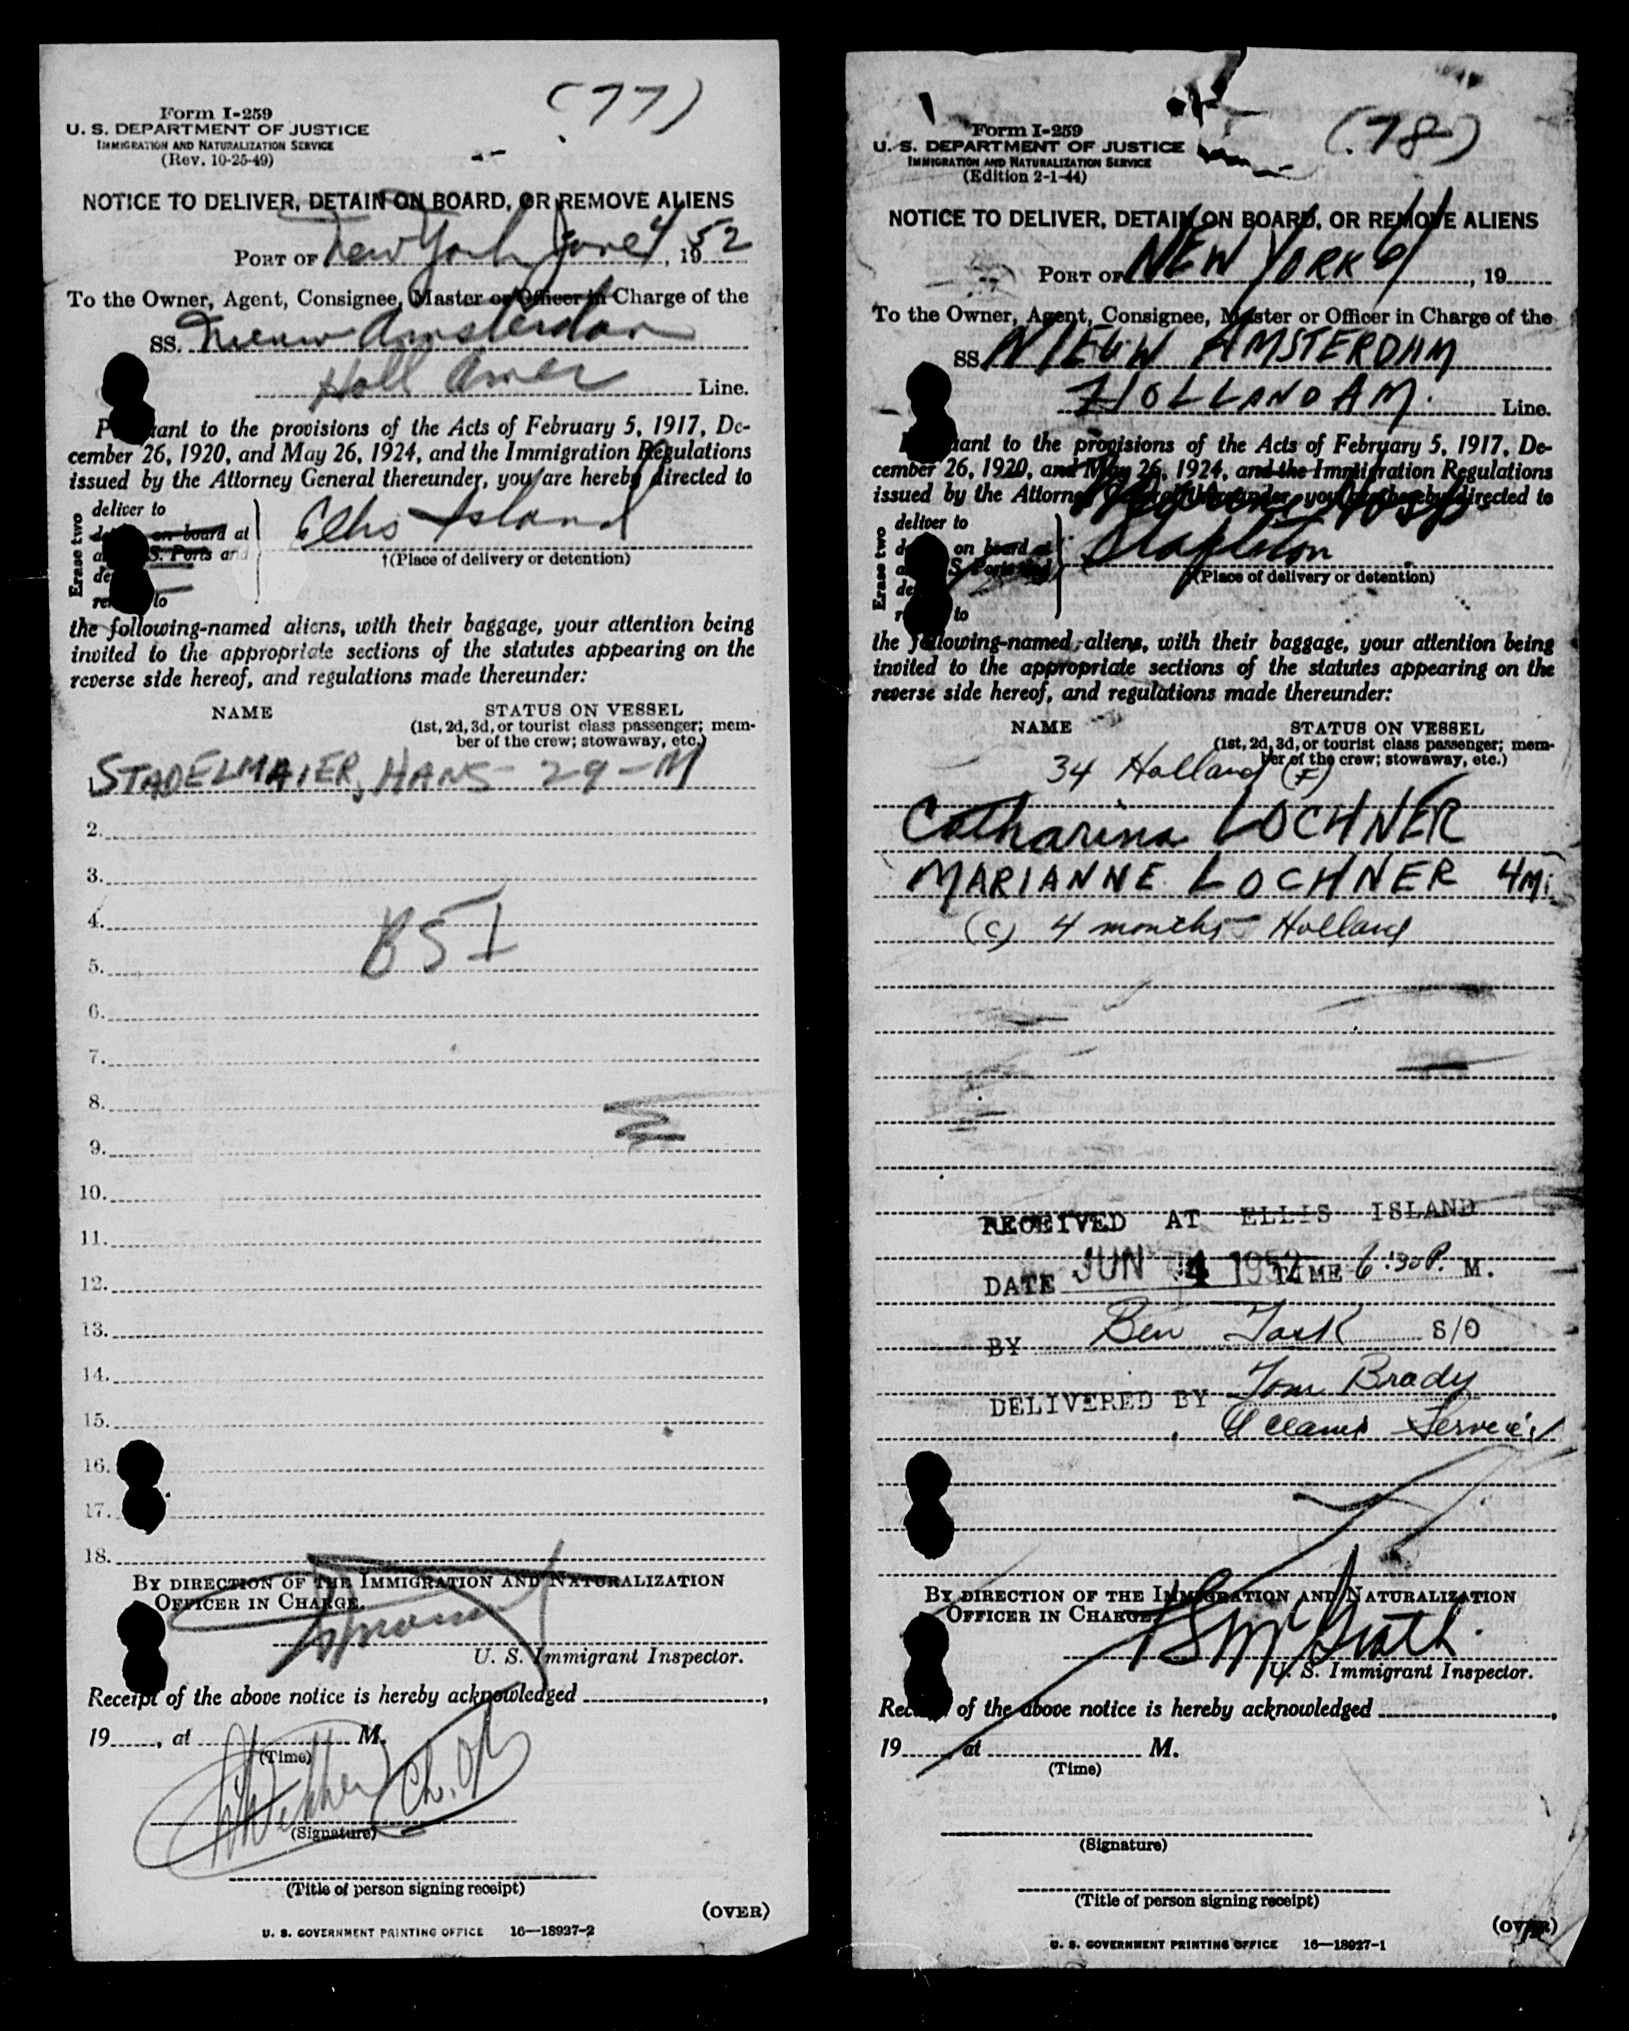 (77)
Form I-259
U. S. DEPARTMENT OF JUSTICE
IMMIGRATION AND NATURALIZATION SERVICE
(Rev. 10-25-49)
NOTICE TO DELIVER, DETAIN ON BOARD, OR REMOVE ALIENS
PORT OF New York June 4, 1952
To the Owner, Agent, Consignee, Master or Officer in Charge of the
SS. Nieuw Amsterdam
Holl Amer Line.
Pursuant to the provisions of the Acts of February 5, 1917, De-
cember 26, 1920, and May 26, 1924, and the Immigration Regulations
issued by the Attorney General thereunder, you are hereby directed to
Erase two
deliver to
on board at
S. Ports and
to
Ellis Island
†(Place of delivery or detention)
the following-named aliens, with their baggage, your attention being
invited to the appropriate sections of the statutes appearing on the
reverse side hereof, and regulations made thereunder:
NAME STATUS ON VESSEL
(1st, 2d, 3d, or tourist class passenger; mem-
ber of the crew; stowaway, etc.)
1. STADELMAIER, HANS - 29 - M
2.
3.
4.
BSI
5.
6.
7.
8.
9.
10.
11.
12.
13.
14.
15.
16.
17.
18.
BY DIRECTION OF THE IMMIGRATION AND NATURALIZATION
OFFICER IN CHARGE.
U. S. Immigrant Inspector.
Receipt of the above notice is hereby acknowledged ,
19 , at M.
(Time)
Ch. Of
(Signature)
(Title of person signing receipt)
(OVER)
U. S. GOVERNMENT PRINTING OFFICE 16—18927-2
(78)
Form I-259
U. S. DEPARTMENT OF JUSTICE
IMMIGRATION AND NATURALIZATION SERVICE
(Edition 2-1-44)
NOTICE TO DELIVER, DETAIN ON BOARD, OR REMOVE ALIENS
PORT OF NEW YORK 6/4, 19
To the Owner, Agent, Consignee, Master or Officer in Charge of the
SS NIEUW AMSTERDAM
HOLLAND AM. Line.
Pursuant to the provisions of the Acts of February 5, 1917, De-
cember 26, 1920, and May 26, 1924, and the Immigration Regulations
issued by the Attorney General thereunder, you are hereby directed to
Erase two
deliver to
on board at
S. Ports and
to
Marine Hosp.
Stapleton
(Place of delivery or detention)
the following-named aliens, with their baggage, your attention being
invited to the appropriate sections of the statutes appearing on the
reverse side hereof, and regulations made thereunder:
NAME STATUS ON VESSEL
(1st, 2d, 3d, or tourist class passenger; mem-
ber of the crew; stowaway, etc.)
34 Holland (F)
Catharina LOCHNER
MARIANNE LOCHNER 4M.
(C) 4 months - Holland
RECEIVED AT ELLIS ISLAND
DATE JUN 4 1952 TIME 6:30 P. M.
BY Ben Tark S/O
DELIVERED BY Tom Brady
BY DIRECTION OF THE IMMIGRATION AND NATURALIZATION
OFFICER IN CHARGE.
B McGrath
U. S. Immigrant Inspector.
Receipt of the above notice is hereby acknowledged ,
19 , at M.
(Time)
(Signature)
(Title of person signing receipt)
(OVER)
U. S. GOVERNMENT PRINTING OFFICE 16—18927-1